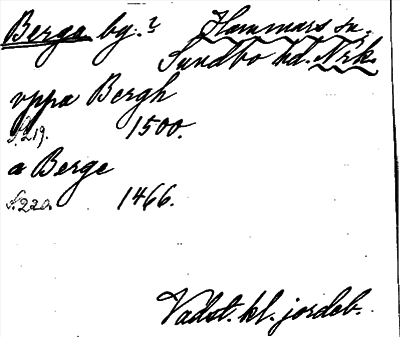 Berga by.? Hammars sn.
Sundbo hd. Nrk.
uppa Bergh
s. 219. 1500.
a Berge
s. 220. 1466.
Vadst. kl. jordeb.